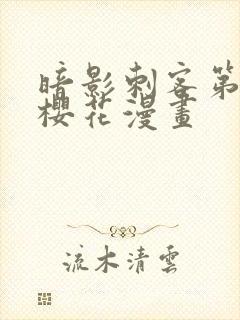 暗影刺客第
櫻花漫畫
流木清雲